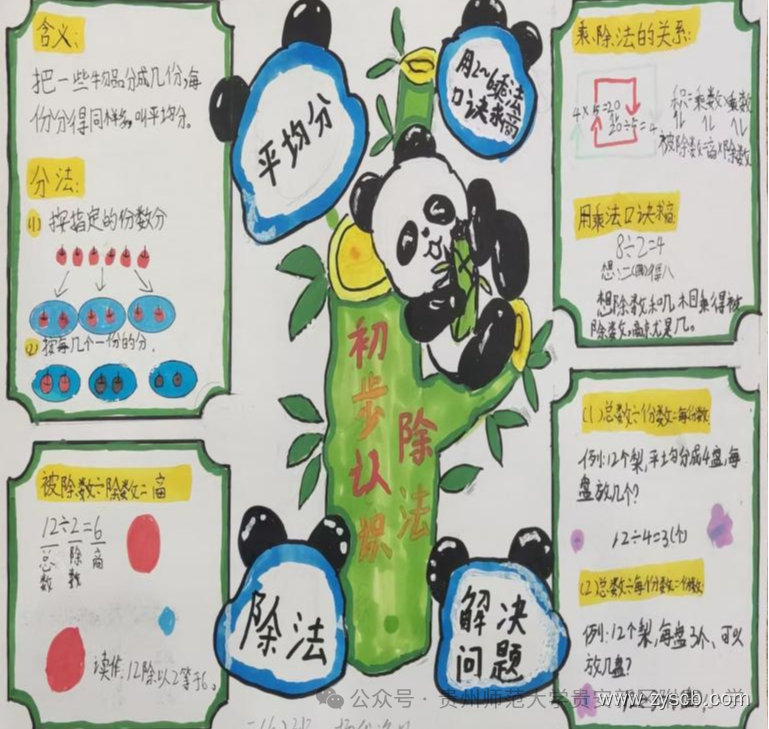 含义:
把一些物品分成几份,每
份分得同样多,叫平均分。
分法:
(1) 按指定的份数分
(2) 按每几个一份的分.
平均分
用2~6的乘法
口诀求商
乘、除法的关系:
4×5=20
20÷5=4
积=乘数×乘数
被除数=商×除数
用乘法口诀求商
8÷2=4
想:二(四)得八
想除数和几相乘得被
除数,商就是几。
初步认识
除法
被除数÷除数=商
12÷2=6
总数
除数
商
读作:12除以2等于6。
除法
解决
问题
(1)总数÷份数=每份数
例:12个梨,平均分成4盘,每
盘放几个?
12÷4=3(个)
(2)总数÷每份数=份数
例:12个梨,每盘3个,可以
放几盘?
公众号·贵州师范大学贵安
www.zyscb.com